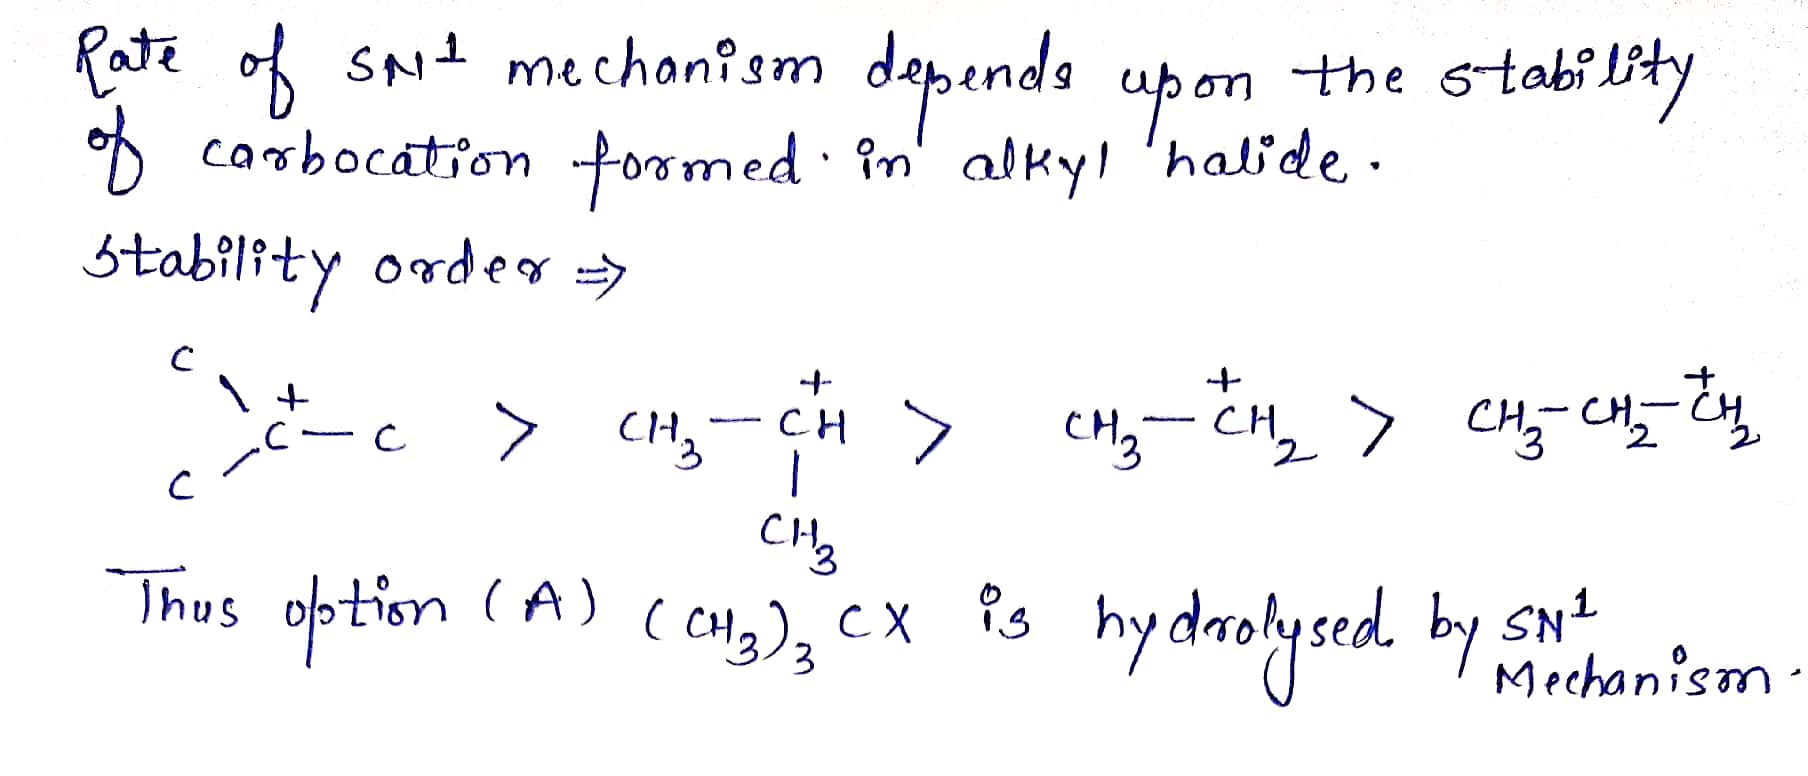 Rate of SN1 mechanism depends upon the stability
of carbocation formed in alkyl halide.
Stability order ⇒
C
\ +
C — C > CH3 — C⁺H > CH3 — C⁺H2 > CH3 — CH2 — C⁺H2
/ |
C CH3
Thus option (A) (CH3)3 CX is hydrolysed by SN1
Mechanism.